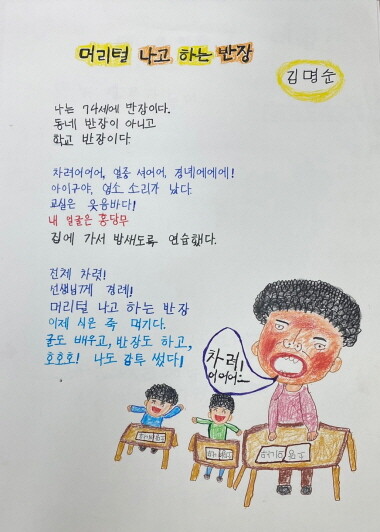 머리털 나고 하는 반장
김명순
나는 74세에 반장이다.
동네 반장이 아니고
학교 반장이다.
차려어어어, 열중 셔어어, 경녜에에에!
아이구야, 염소 소리가 났다.
교실은 웃음바다!
내 얼굴은 홍당무
집에 가서 밤새도록 연습했다.
전체 차렷!
선생님께 경례!
머리털 나고 하는 반장
이제 식은 죽 먹기다.
글도 배우고, 반장도 하고,
호호호! 나도 감투 썼다!
차려!
어어어~